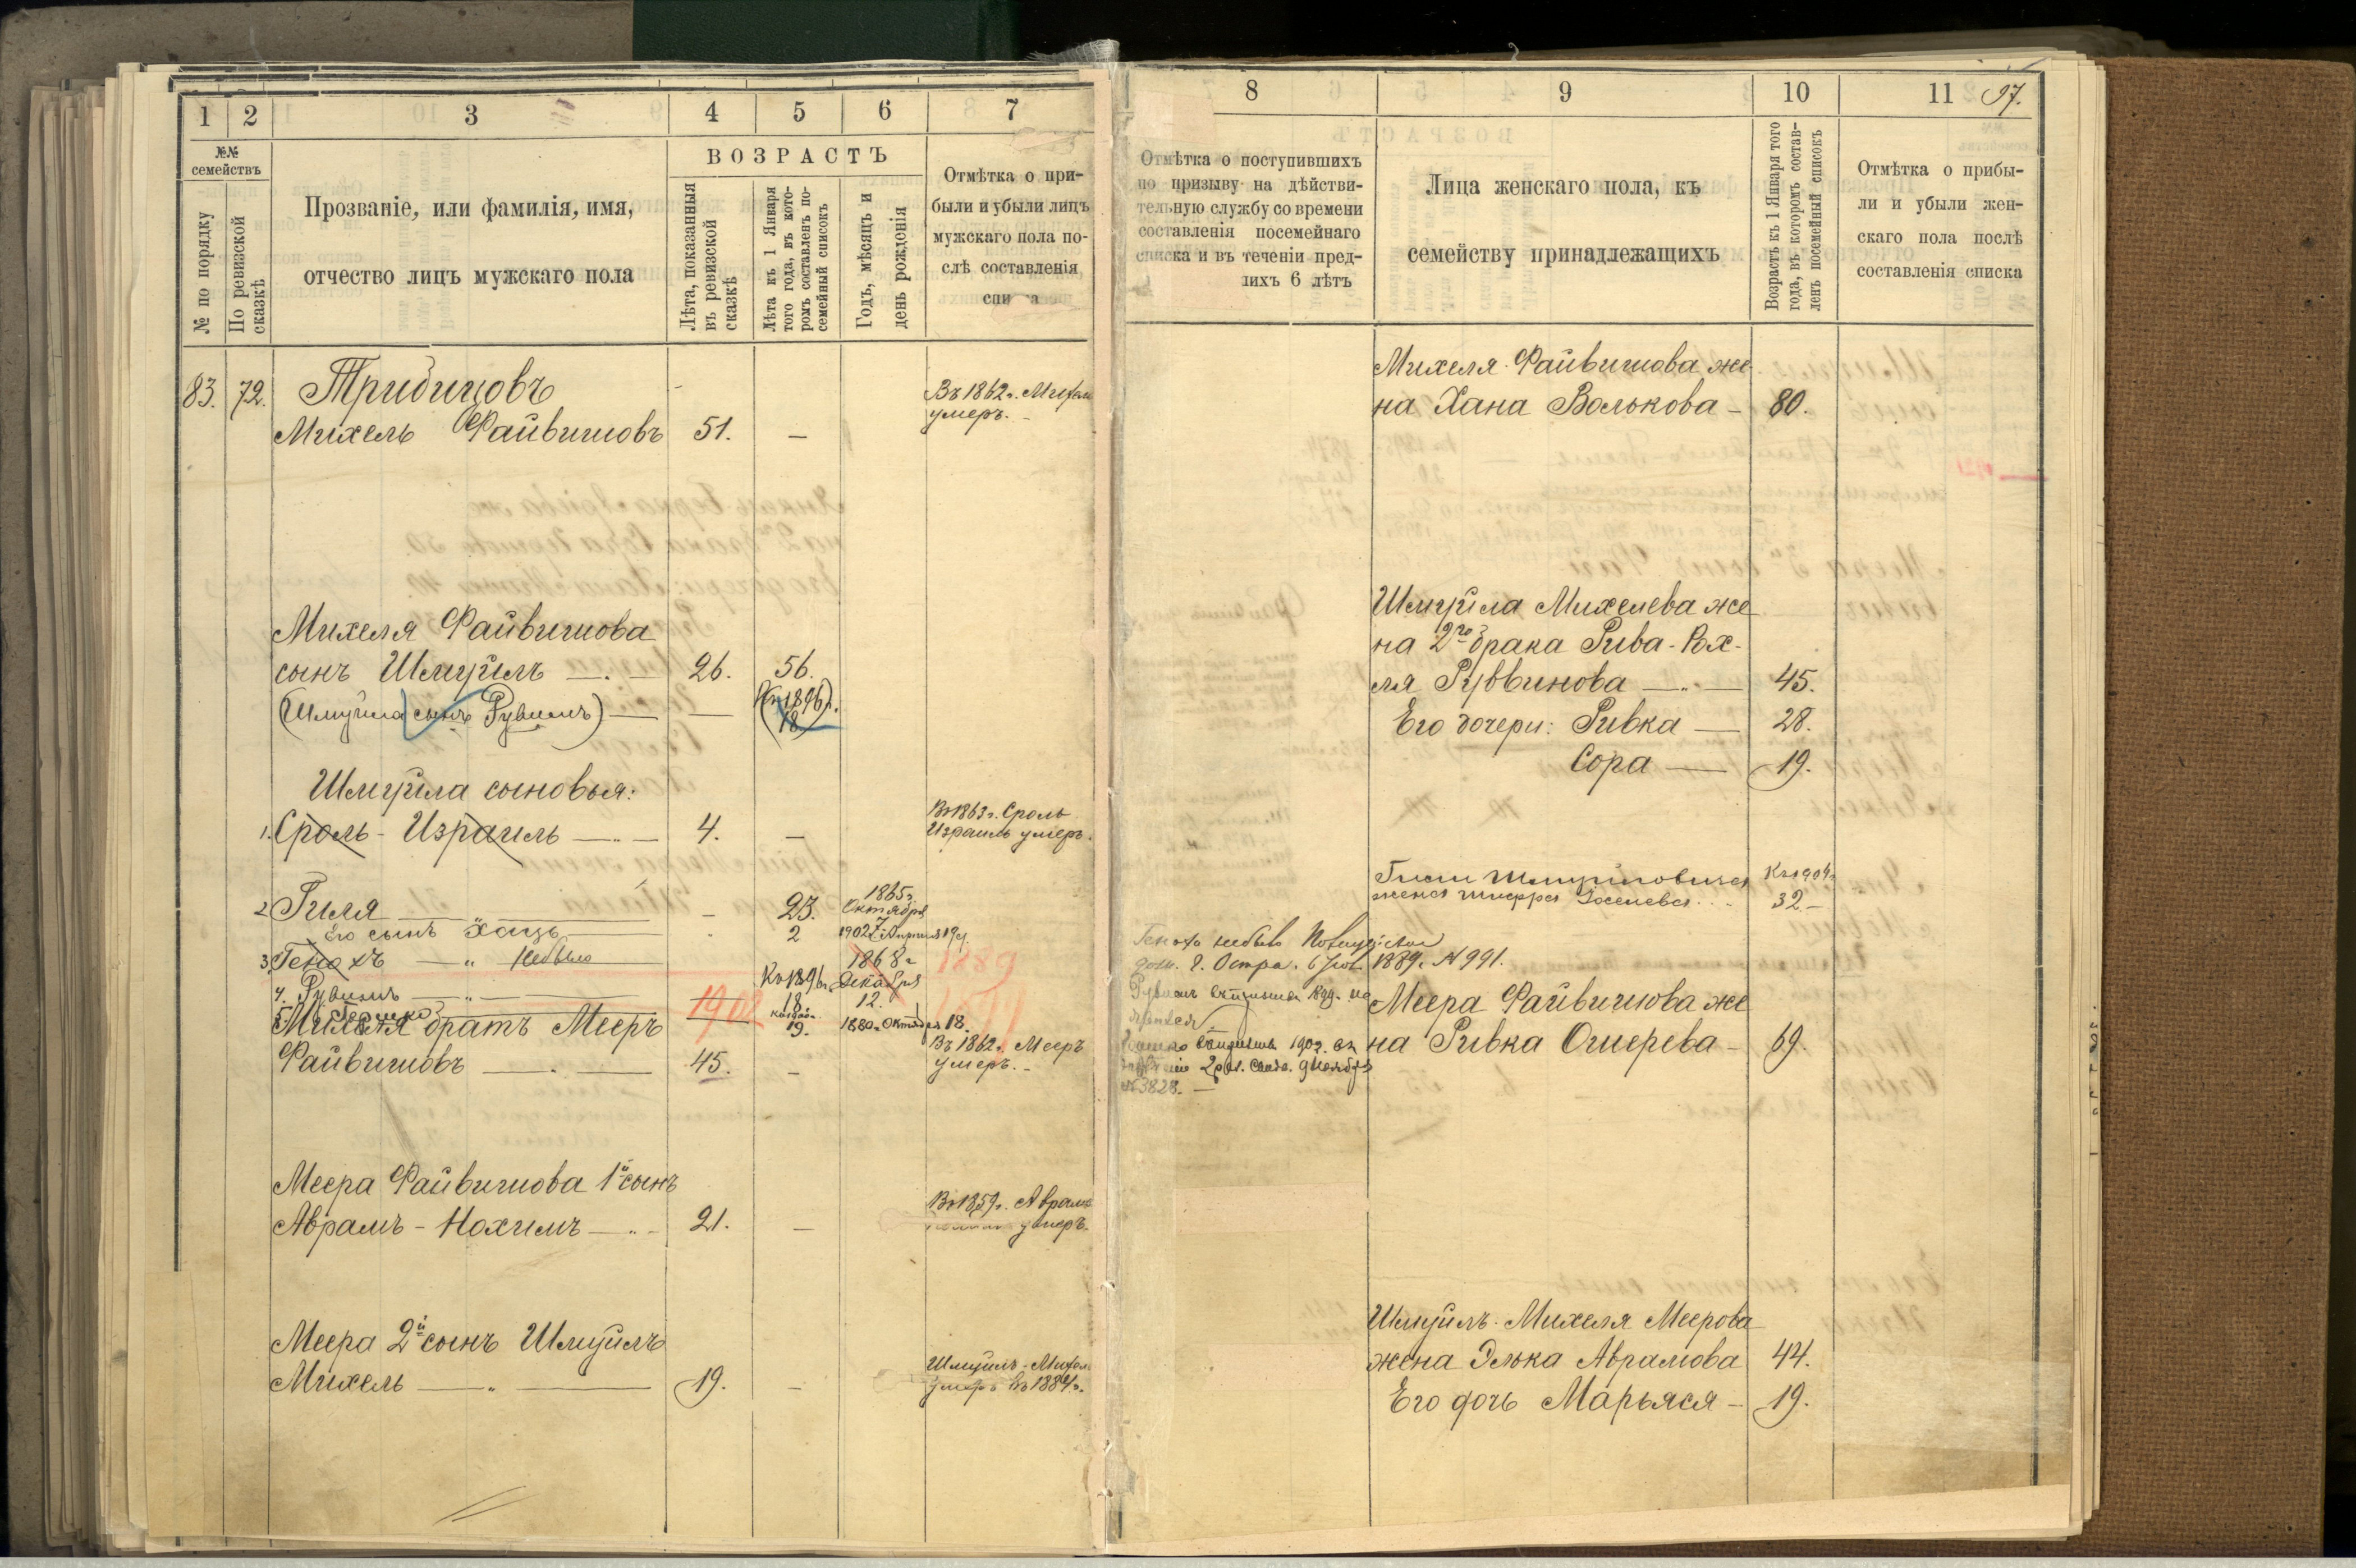 1 2 3 4 5 6 7
№№ семействъ
№ по порядку
По ревизской сказкѣ
Прозваніе, или фамилія, имя,
отчество лицъ мужскаго пола
ВОЗРАСТЪ
Лѣта, показанныя
въ ревизской
сказкѣ
Лѣта къ 1 Января
того года, въ кото-
ромъ составленъ по-
семейный списокъ
Годъ, мѣсяцъ и
день рожденія
Отмѣтка о при-
были и убыли лицъ
мужскаго пола по-
слѣ составленія
83. 72. Трибицовъ
Въ 1862 г. Михель
умеръ. -
Михель Файвишовъ 51. —
Михеля Файвишова
сынъ Шмуйлъ 26. 56.
(Шмуйла сынъ Рувимъ) — — (Къ 1896 г.
18)
Шмуйла сыновья:
1. Сроль - Израиль 4. —
Въ 1863 г. Сроль
Израиль умеръ.
2 Гиля - 23. 1865 г.
Октября
Его сынъ 2 1902
3. Генохъ 1868 г. 1889
Декабря
12.
4. Рувимъ Къ 1896 г.
18.
1902
5.
19. 1880 г. Октября 18.
Михеля братъ Мееръ
Файвишовъ 45. —
Въ 1862 г. Мееръ
умеръ. -
Меера Файвишова 1й сынъ
Аврамъ - Нохимъ 21. —
Въ 1859 г. Аврамъ
умеръ.
Меера 2й сынъ Шмуйлъ
Михель 19. —
Шмуйлъ - Михель
умеръ въ 1884 г.
8 9 10 11 97.
Отмѣтка о поступившихъ
по призыву на дѣйстви-
тельную службу со времени
составленія посемейнаго
списка и въ теченіи пред-
ихъ 6 лѣтъ
Лица женскаго пола, къ
семейству принадлежащихъ
Возрастъ къ 1 Января того
года, въ которомъ состав-
ленъ посемейный списокъ
Отмѣтка о прибы-
ли и убыли жен-
скаго пола послѣ
составленія списка
Михеля Файвишова же
на Хана Волькова - 80.
Шмуйла Михелева же
на 2го брака Рива - Рох-
ля Рувинова 45.
Его дочери: Ривка — 28.
Сора — 19.
Гили Шмуйловича
жена
Къ 1904 г.
32 -
Генохъ
1889 г. № 991.
Рувимъ 1899 г.
1902 г.
№ 3828. -
Меера Файвишова же
на Ривка Ошерева - 69.
Шмуйлъ - Михеля Меерова
жена Элька Аврамова 44.
Его дочь Марьяся - 19.